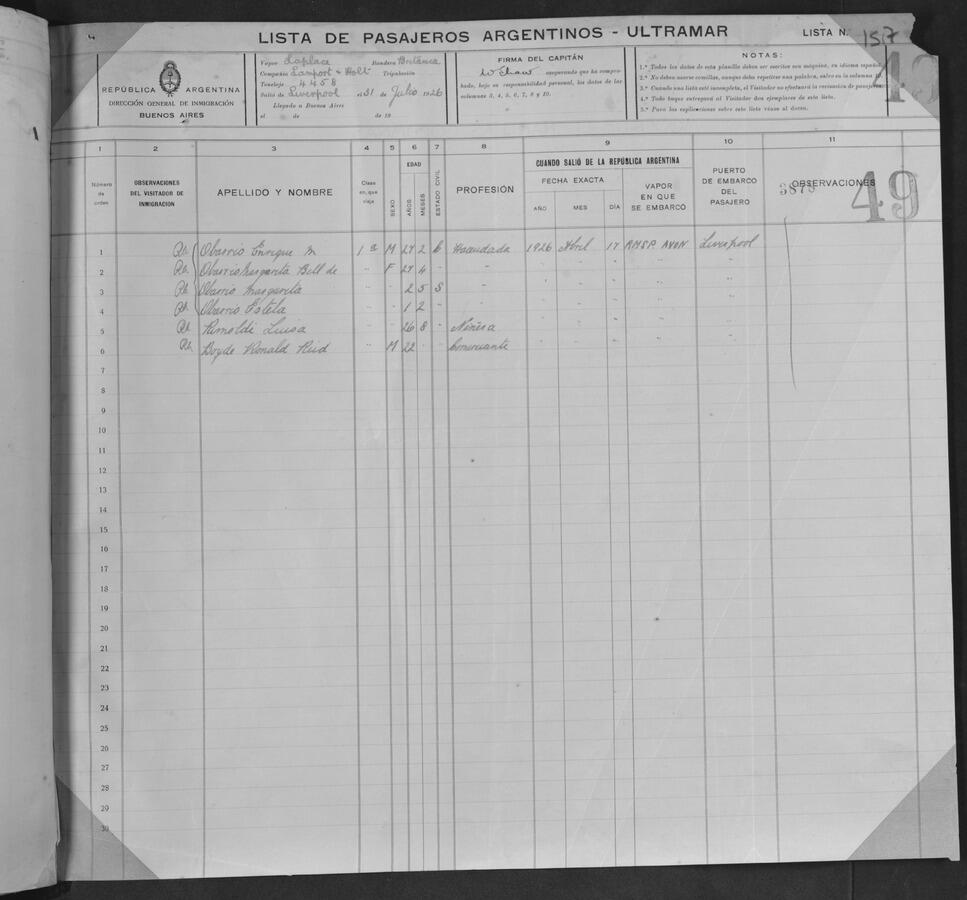 LISTA DE PASAJEROS ARGENTINOS - ULTRAMAR
LISTA N. 157
REPÚBLICA ARGENTINA
DIRECCIÓN GENERAL DE INMIGRACIÓN
BUENOS AIRES
Vapor Laplace Bandera Britanica
Compañía Lamport & Holt Tripulación
Tonelaje 4458
Salió de Liverpool el 31 de Julio 1926
Llegado a Buenos Aires
el de de 19
FIRMA DEL CAPITÁN
W Shaw asegurando que ha comprobado, bajo su responsabilidad personal, los datos de las columnas 3, 4, 5, 6, 7, 8 y 10.
NOTAS:
1.ª Todos los datos de esta planilla deben ser escritos con máquina, en idioma español
2.ª No deben usarse comillas, aunque deba repetirse una palabra, salvo en la columna
3.ª Cuando una lista esté incompleta, el Visitador no efectuará la revisación de pasajeros
4.ª Todo buque entregará al Visitador dos ejemplares de esta lista.
5.ª Para las explicaciones sobre esta lista véase al dorso.
49
1 2 3 4 5 6 7 8 9 10 11
Número de orden
OBSERVACIONES DEL VISITADOR DE INMIGRACION
APELLIDO Y NOMBRE
Clase en que viaja
SEXO
EDAD
AÑOS
MESES
ESTADO CIVIL
PROFESIÓN
CUANDO SALIÓ DE LA REPÚBLICA ARGENTINA
FECHA EXACTA
AÑO MES DIA
VAPOR EN QUE SE EMBARCÓ
PUERTO DE EMBARCO DEL PASAJERO
OBSERVACIONES
49
1 Obarrio Enrique M 1ª M 27 2 C Hacendado 1926 Abril 17 RMSP AVON Liverpool
2 Obarrio Margarita Bell de " F 27 4 " " " " " " "
3 Obarrio Margarita " " 2 5 S " " " " " "
4 Obarrio Estela " " 1 2 " " " " " " "
5 Rimoldi Luisa " " 26 8 " Niñera " " " " "
6 Boyde Ronald Reid " M 22 " " Comerciante " " " " "
7
8
9
10
11
12
13
14
15
16
17
18
19
20
21
22
23
24
25
26
27
28
29
30